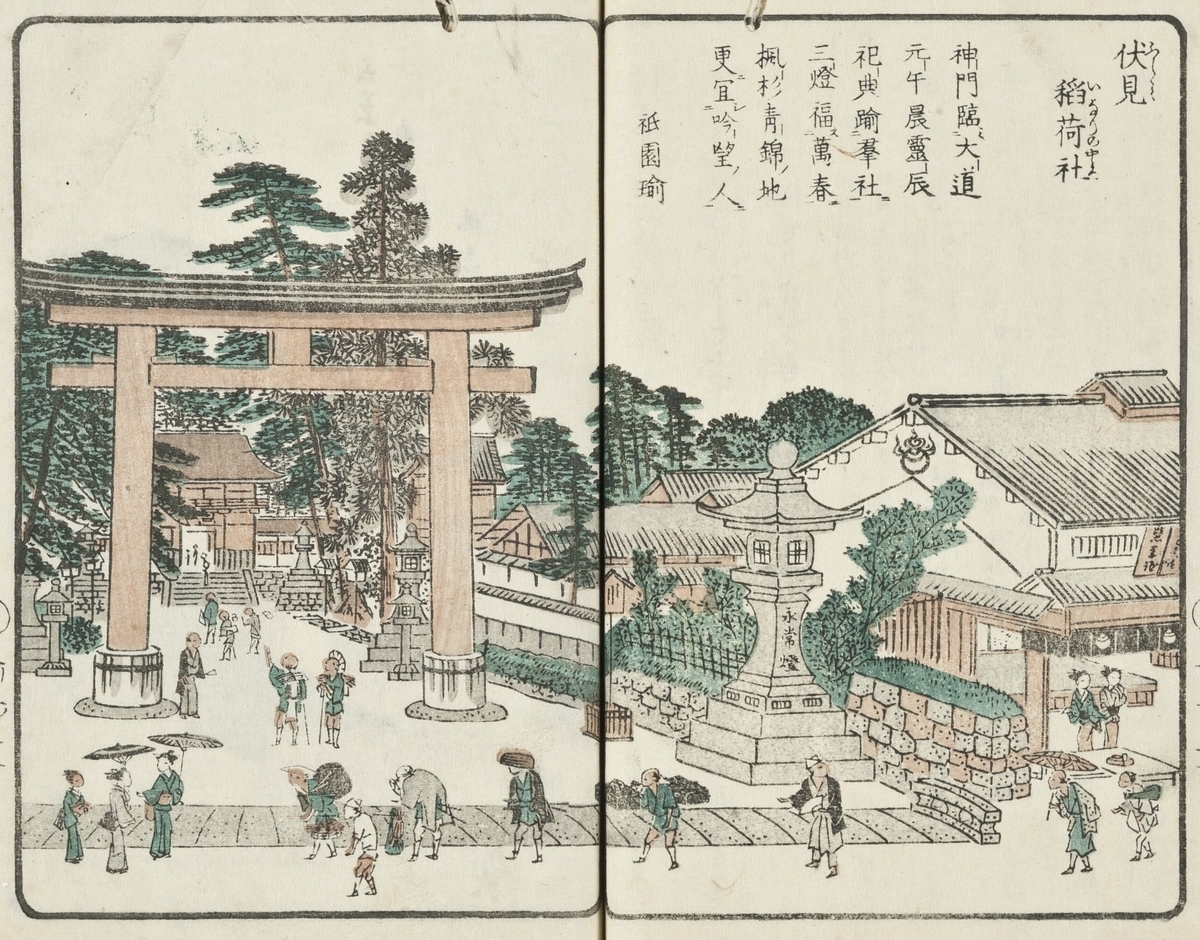 伏見
稻荷社
神門臨大道
元午晨靈辰
祀典踰羣社
三燈福萬春
楓杉青錦地
更宜吟望人
祗園瑜
永常燈